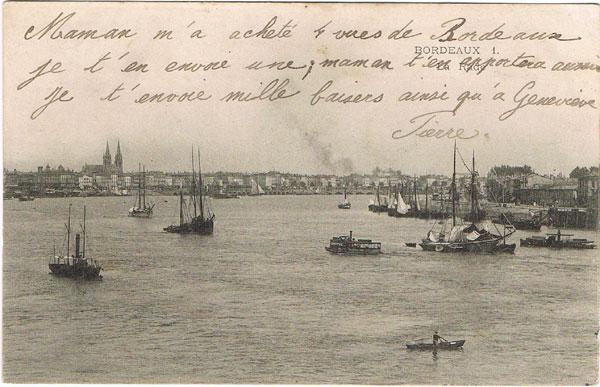 Maman m'a acheté 4 vues de Bordeaux
BORDEAUX 1.
je t'en envoie une; maman t'en apportera aussi
La Rade
Je t'envoie mille baisers ainsi qu'à Geneviève
Pierre.